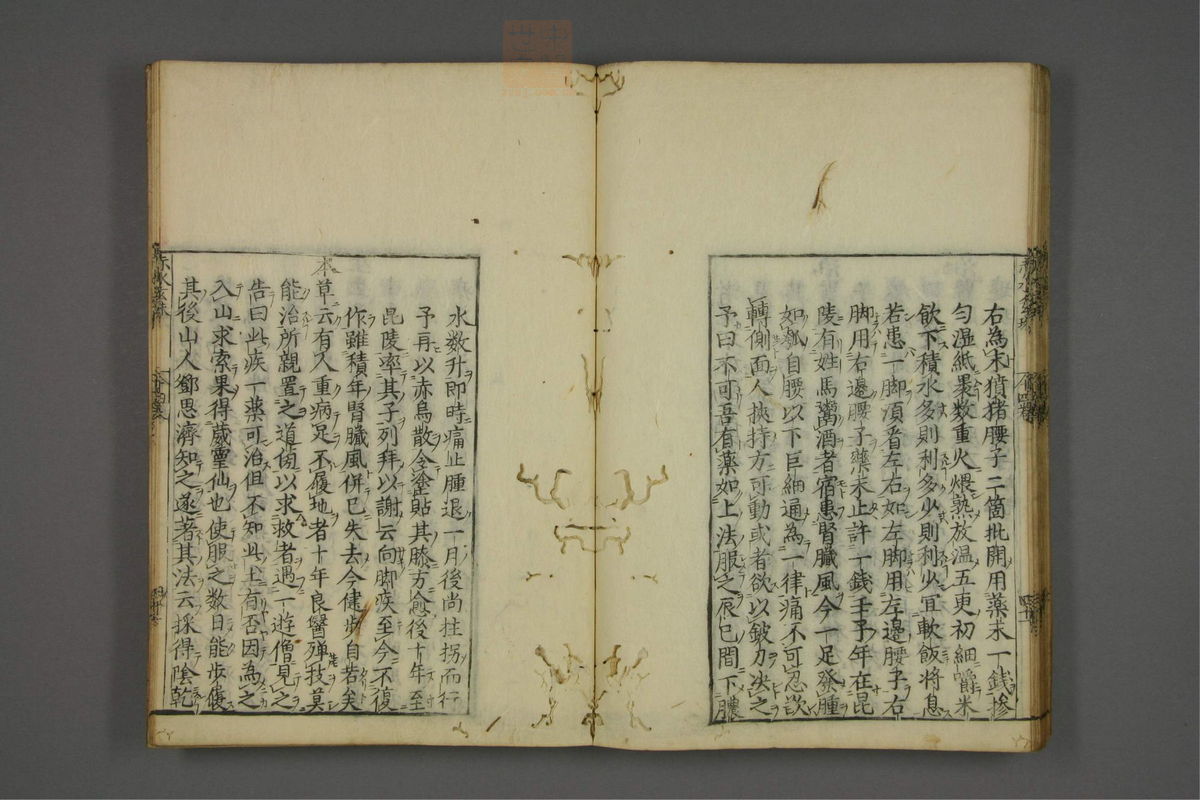 右為末獖猪腰子二箇批開用薬末一銭摻
匀湿紙裹数重火煨熟放温五更初細嚼米
飲下積水多則利多少則利少宜軟飯将息
若患一脚須看左右如左脚用左邊腰子右
脚用右邊腰子薬末止許一銭壬子年在昆
陵有姓馬鬻酒者宿患腎臓風今一足發腫
如瓠自腰以下巨細通為一律痛不可忍欲
轉側面人挾持方可動或者欲以鈹刀决之
予曰不可吾有薬如上法服之辰巳間下膿
水数升即時痛止腫退一月後尚拄拐而行
予再以赤烏散令塗貼其膝方愈後十年至
昆陵率其子列拜以謝云向脚疾至今不復
作雖積年腎臓風併已失去今健歩自若矣
本草云有人重病足不履地者十年良醫殫技莫
能治所親置之道傍以求救者遇一遊僧見之
告曰此疾一薬可治但不知此土有否因為之
入山求索果得葳靈仙也使服之数日能歩履
其後山人鄧思濟知之遂著其法云採得陰乾